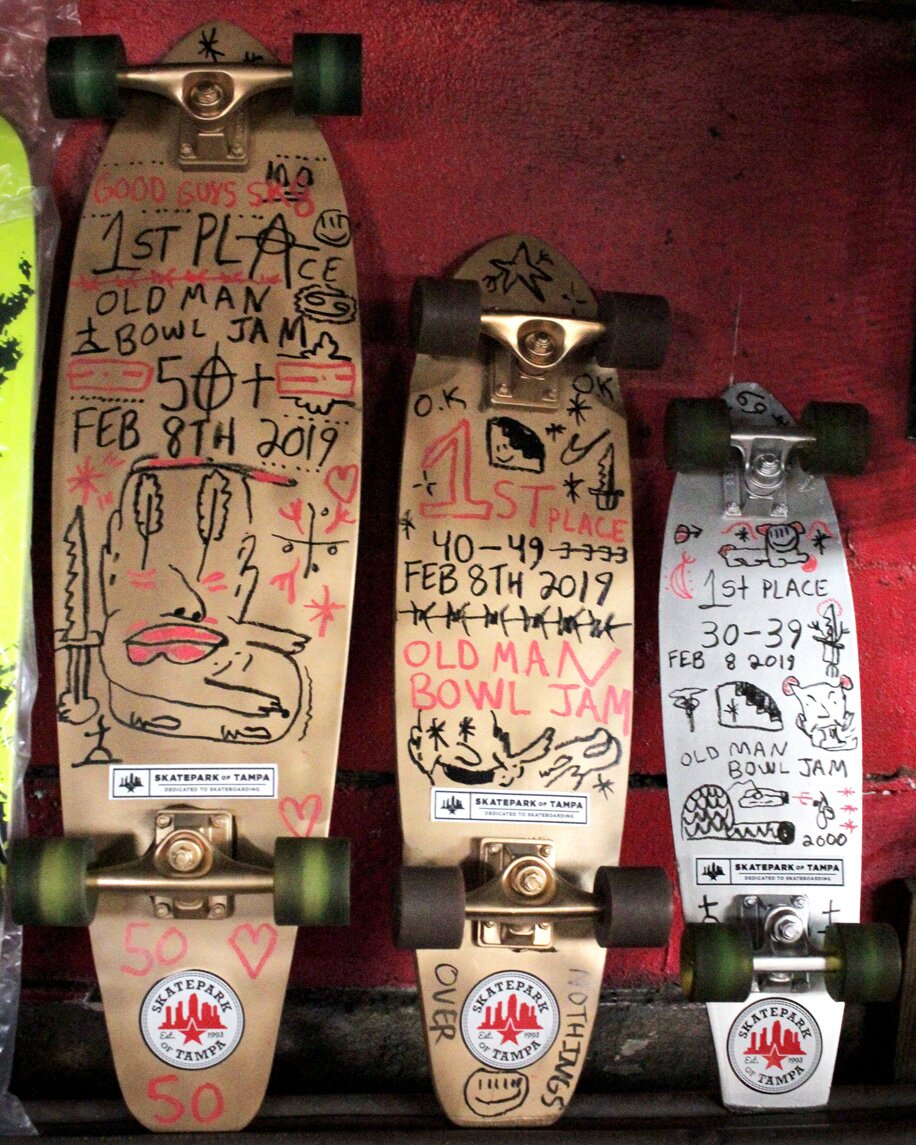 GOOD BUYS SK8
1ST PLACE
OLD MAN
BOWL JAM
50+
FEB 8TH 2019
SKATEPARK OF TAMPA
DEDICATED TO SKATEBOARDING
50
SKATEPARK
Est. 1993
OF TAMPA
50
O.K
OK
1ST PLACE
40-49
FEB 8TH 2019
OLD MAN
BOWL JAM
SKATEPARK OF TAMPA
DEDICATED TO SKATEBOARDING
NOTHINGS
OVER
SKATEPARK
Est. 1993
OF TAMPA
69
1st PLACE
30-39
FEB 8 2019
OLD MAN
BOWL JAM
2000
SKATEPARK OF TAMPA
DEDICATED TO SKATEBOARDING
SKATEPARK
Est. 1993
OF TAMPA